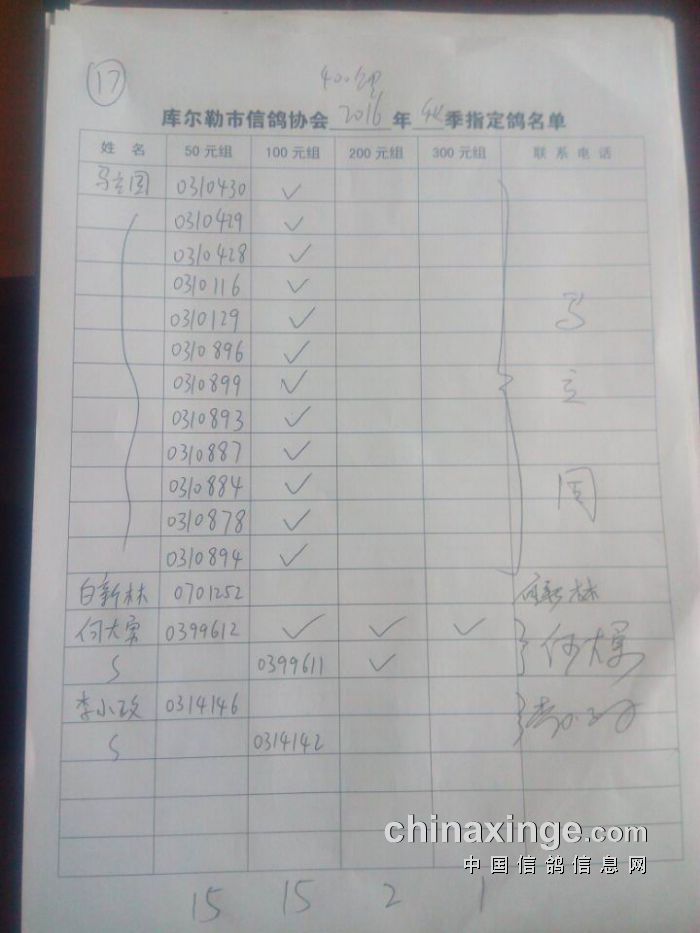 17
400公里
库尔勒市信鸽协会2016年秋季指定鸽名单
姓 名 50元组 100元组 200元组 300元组 联系电话
马立周 0310430 ✓
0310429 ✓
0310428 ✓
0310116 ✓
0310129 ✓
0310896 ✓
0310899 ✓
0310893 ✓
0310887 ✓
0310884 ✓
0310878 ✓
0310894 ✓
马立周
白新林 0701252 白新林
何大军 0399612 ✓ ✓ ✓
0399611 ✓
李小政 0314146
0314142
chinaxinge.com
中国信鸽信息网
15 15 2 1